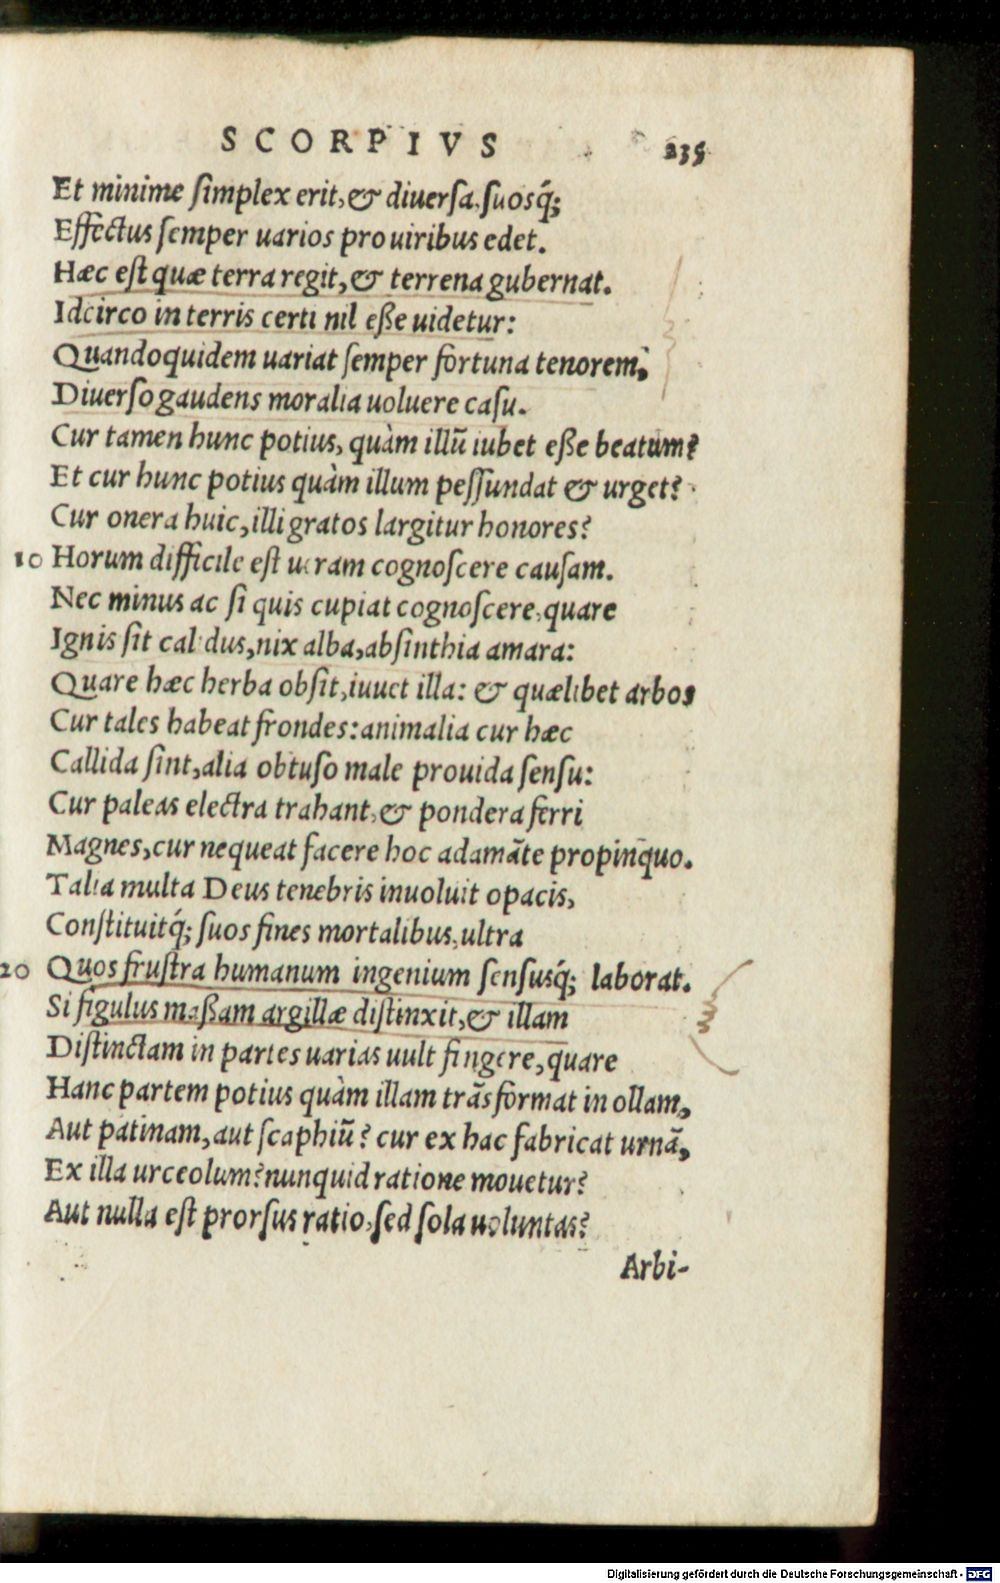 SCORPIVS 235
Et minime ſimplex erit, & diuerſa, ſuosq́;
Effectus ſemper uarios pro uiribus edet.
Hæc eſt quæ terra regit, & terrena gubernat.
Idcirco in terris certi nil eſſe uidetur:
Quandoquidem uariat ſemper fortuna tenorem,
Diuerſo gaudens moralia uoluere caſu.
Cur tamen hunc potius, quàm illū iubet eſſe beatum?
Et cur hunc potius quàm illum peſſundat & urget?
Cur onera huic, illi gratos largitur honores?
10 Horum difficile eſt ueram cognoſcere cauſam.
Nec minus ac ſi quis cupiat cognoſcere, quare
Ignis ſit calidus, nix alba, abſinthia amara:
Quare hæc herba obſit, iuuet illa: & quælibet arbos
Cur tales habeat frondes: animalia cur hæc
Callida ſint, alia obtuſo male prouida ſenſu:
Cur paleas electra trahant, & pondera ferri
Magnes, cur nequeat facere hoc adamāte propinquo.
Talia multa Deus tenebris inuoluit opacis,
Conſtituitq́; ſuos fines mortalibus, ultra
20 Quos fruſtra humanum ingenium ſenſusq́; laborat.
Si figulus maſſam argillæ diſtinxit, & illam
Diſtinctam in partes uarias uult fingere, quare
Hanc partem potius quàm illam trāsformat in ollam,
Aut patinam, aut ſcaphiū? cur ex hac fabricat urnā,
Ex illa urceolum? nunquid ratione mouetur?
Aut nulla eſt prorſus ratio, ſed ſola uoluntas?
Arbi-
Digitalisierung gefördert durch die Deutsche Forschungsgemeinschaft - DFG